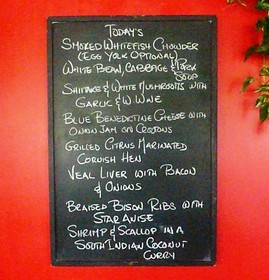 TODAY'S
SMOKED WHITEFISH CHOWDER
(EGG YOLK OPTIONAL)
WHITE BEAN, CABBAGE & PORK
SOUP
SHIITAKE & WHITE MUSHROOMS WITH
GARLIC & W. WINE
BLUE BENEDICTINE CHEESE WITH
ONION JAM ON CROUTONS
GRILLED CITRUS MARINATED
CORNISH HEN
VEAL LIVER WITH BACON
& ONIONS
BRAISED BISON RIBS WITH
STAR ANISE
SHRIMP & SCALLOP IN A
SOUTH INDIAN COCONUT
CURRY